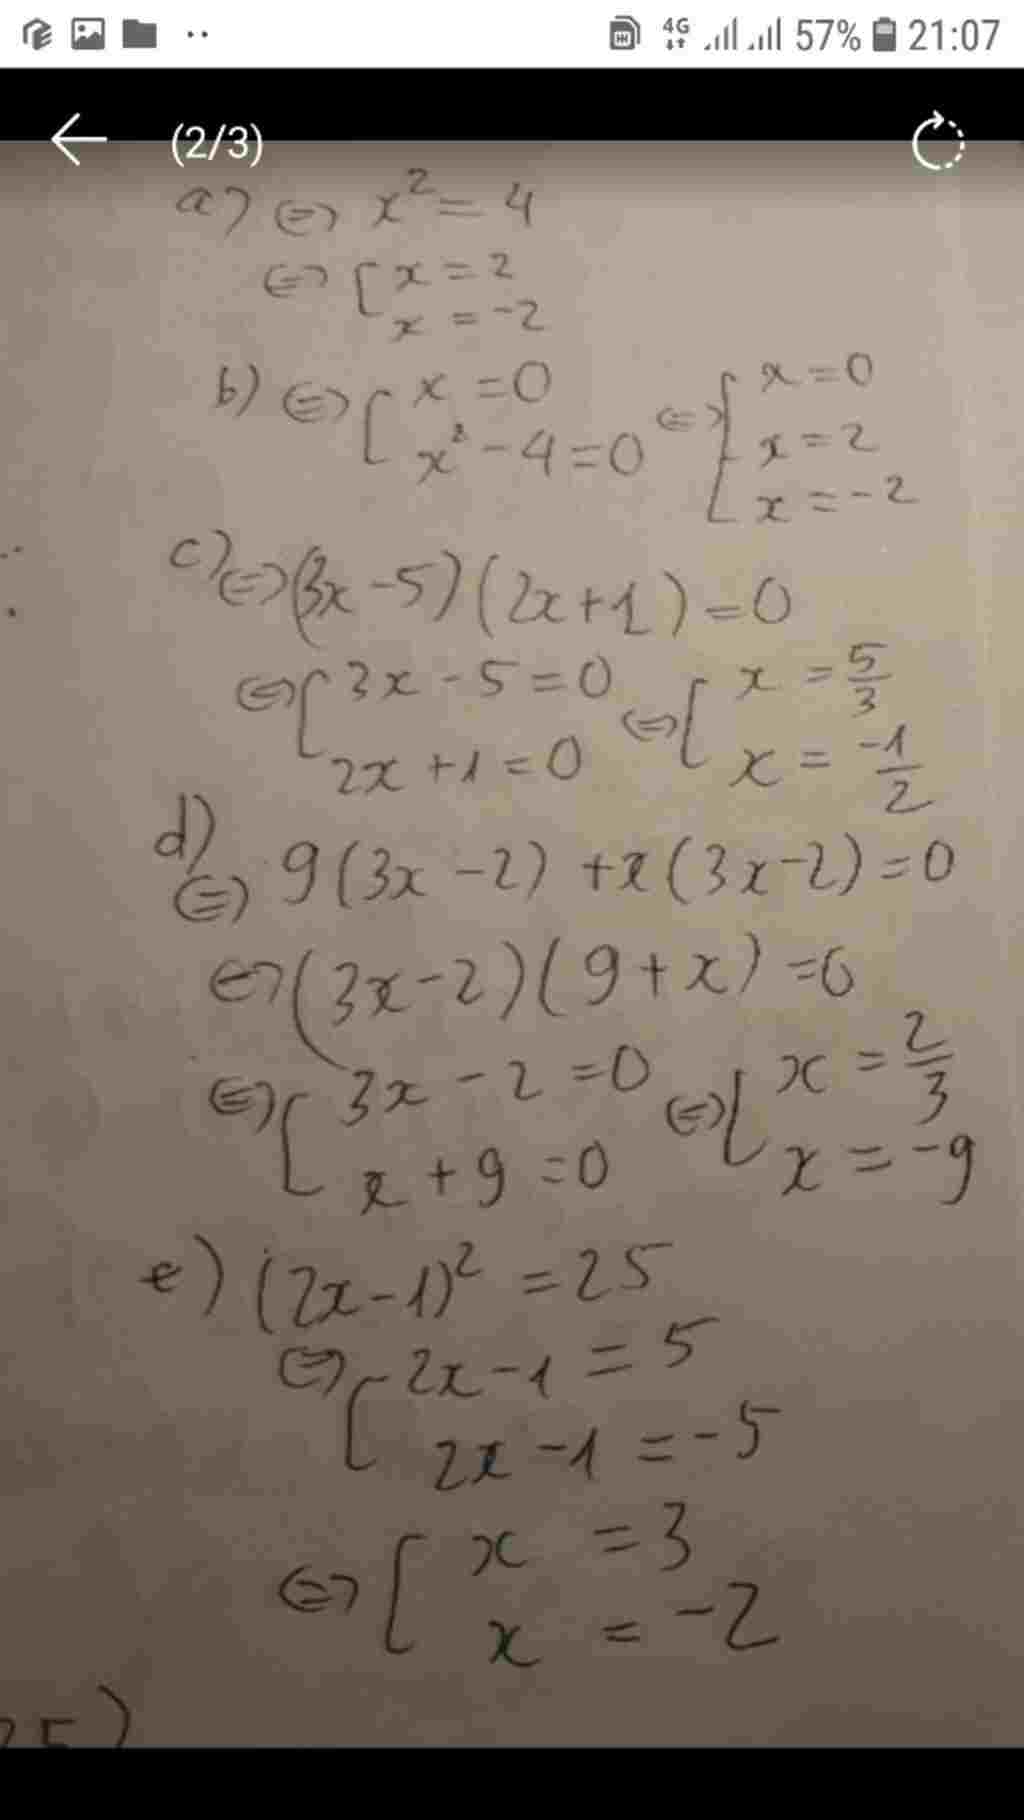 57% 21:07
(2/3)
a) <=> x² = 4
<=> [ x = 2
x = -2
b) <=> [ x = 0 <=> [ x = 0
x² - 4 = 0 x = 2
x = -2
c) <=> (3x - 5)(2x + 1) = 0
<=> [ 3x - 5 = 0 <=> [ x = 5/3
2x + 1 = 0 x = -1/2
d)
<=> 9(3x - 2) + x(3x - 2) = 0
<=> (3x - 2)(9 + x) = 0
<=> [ 3x - 2 = 0 <=> [ x = 2/3
x + 9 = 0 x = -9
e) (2x - 1)² = 25
<=> [ 2x - 1 = 5
2x - 1 = -5
<=> [ x = 3
x = -2